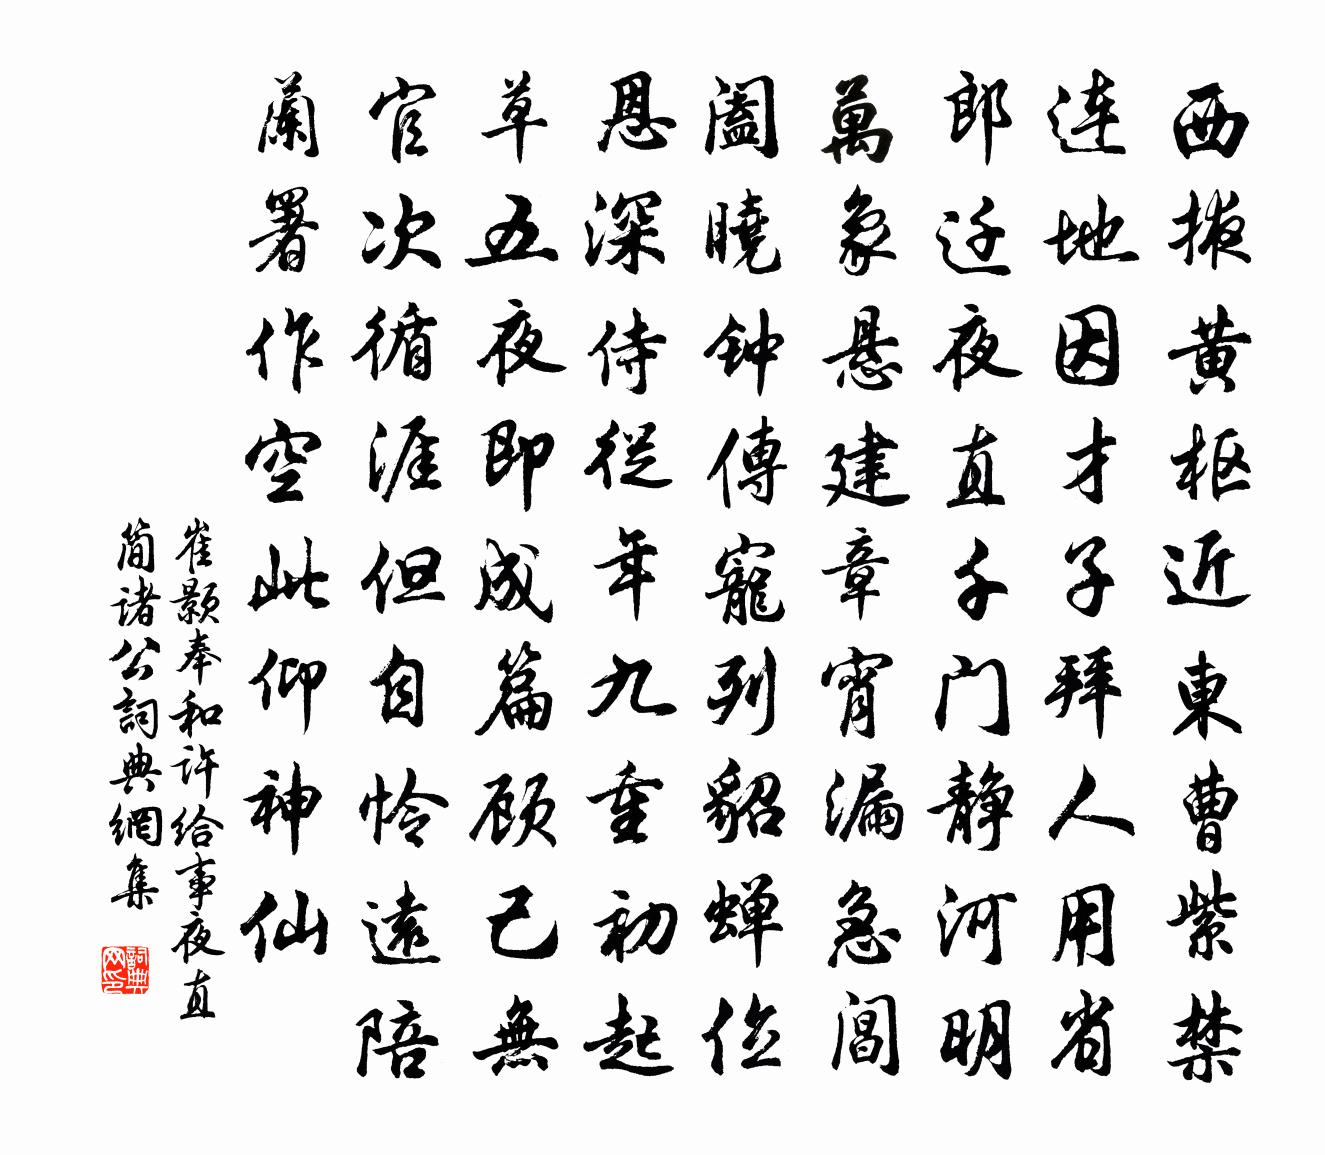 西掖黃枢近東曹紫禁
連地因才子拜人用省
郎迁夜直千门静河明
萬象悬建章宵漏急閶
阖曉钟傳寵列貂蝉位
恩深侍從年九重初起
草五夜即成篇顾己無
官次循涯但自怜遠陪
蘭署作空此仰神仙
崔颢奉和许给事夜直
簡诸公詞典網集
詞典网印